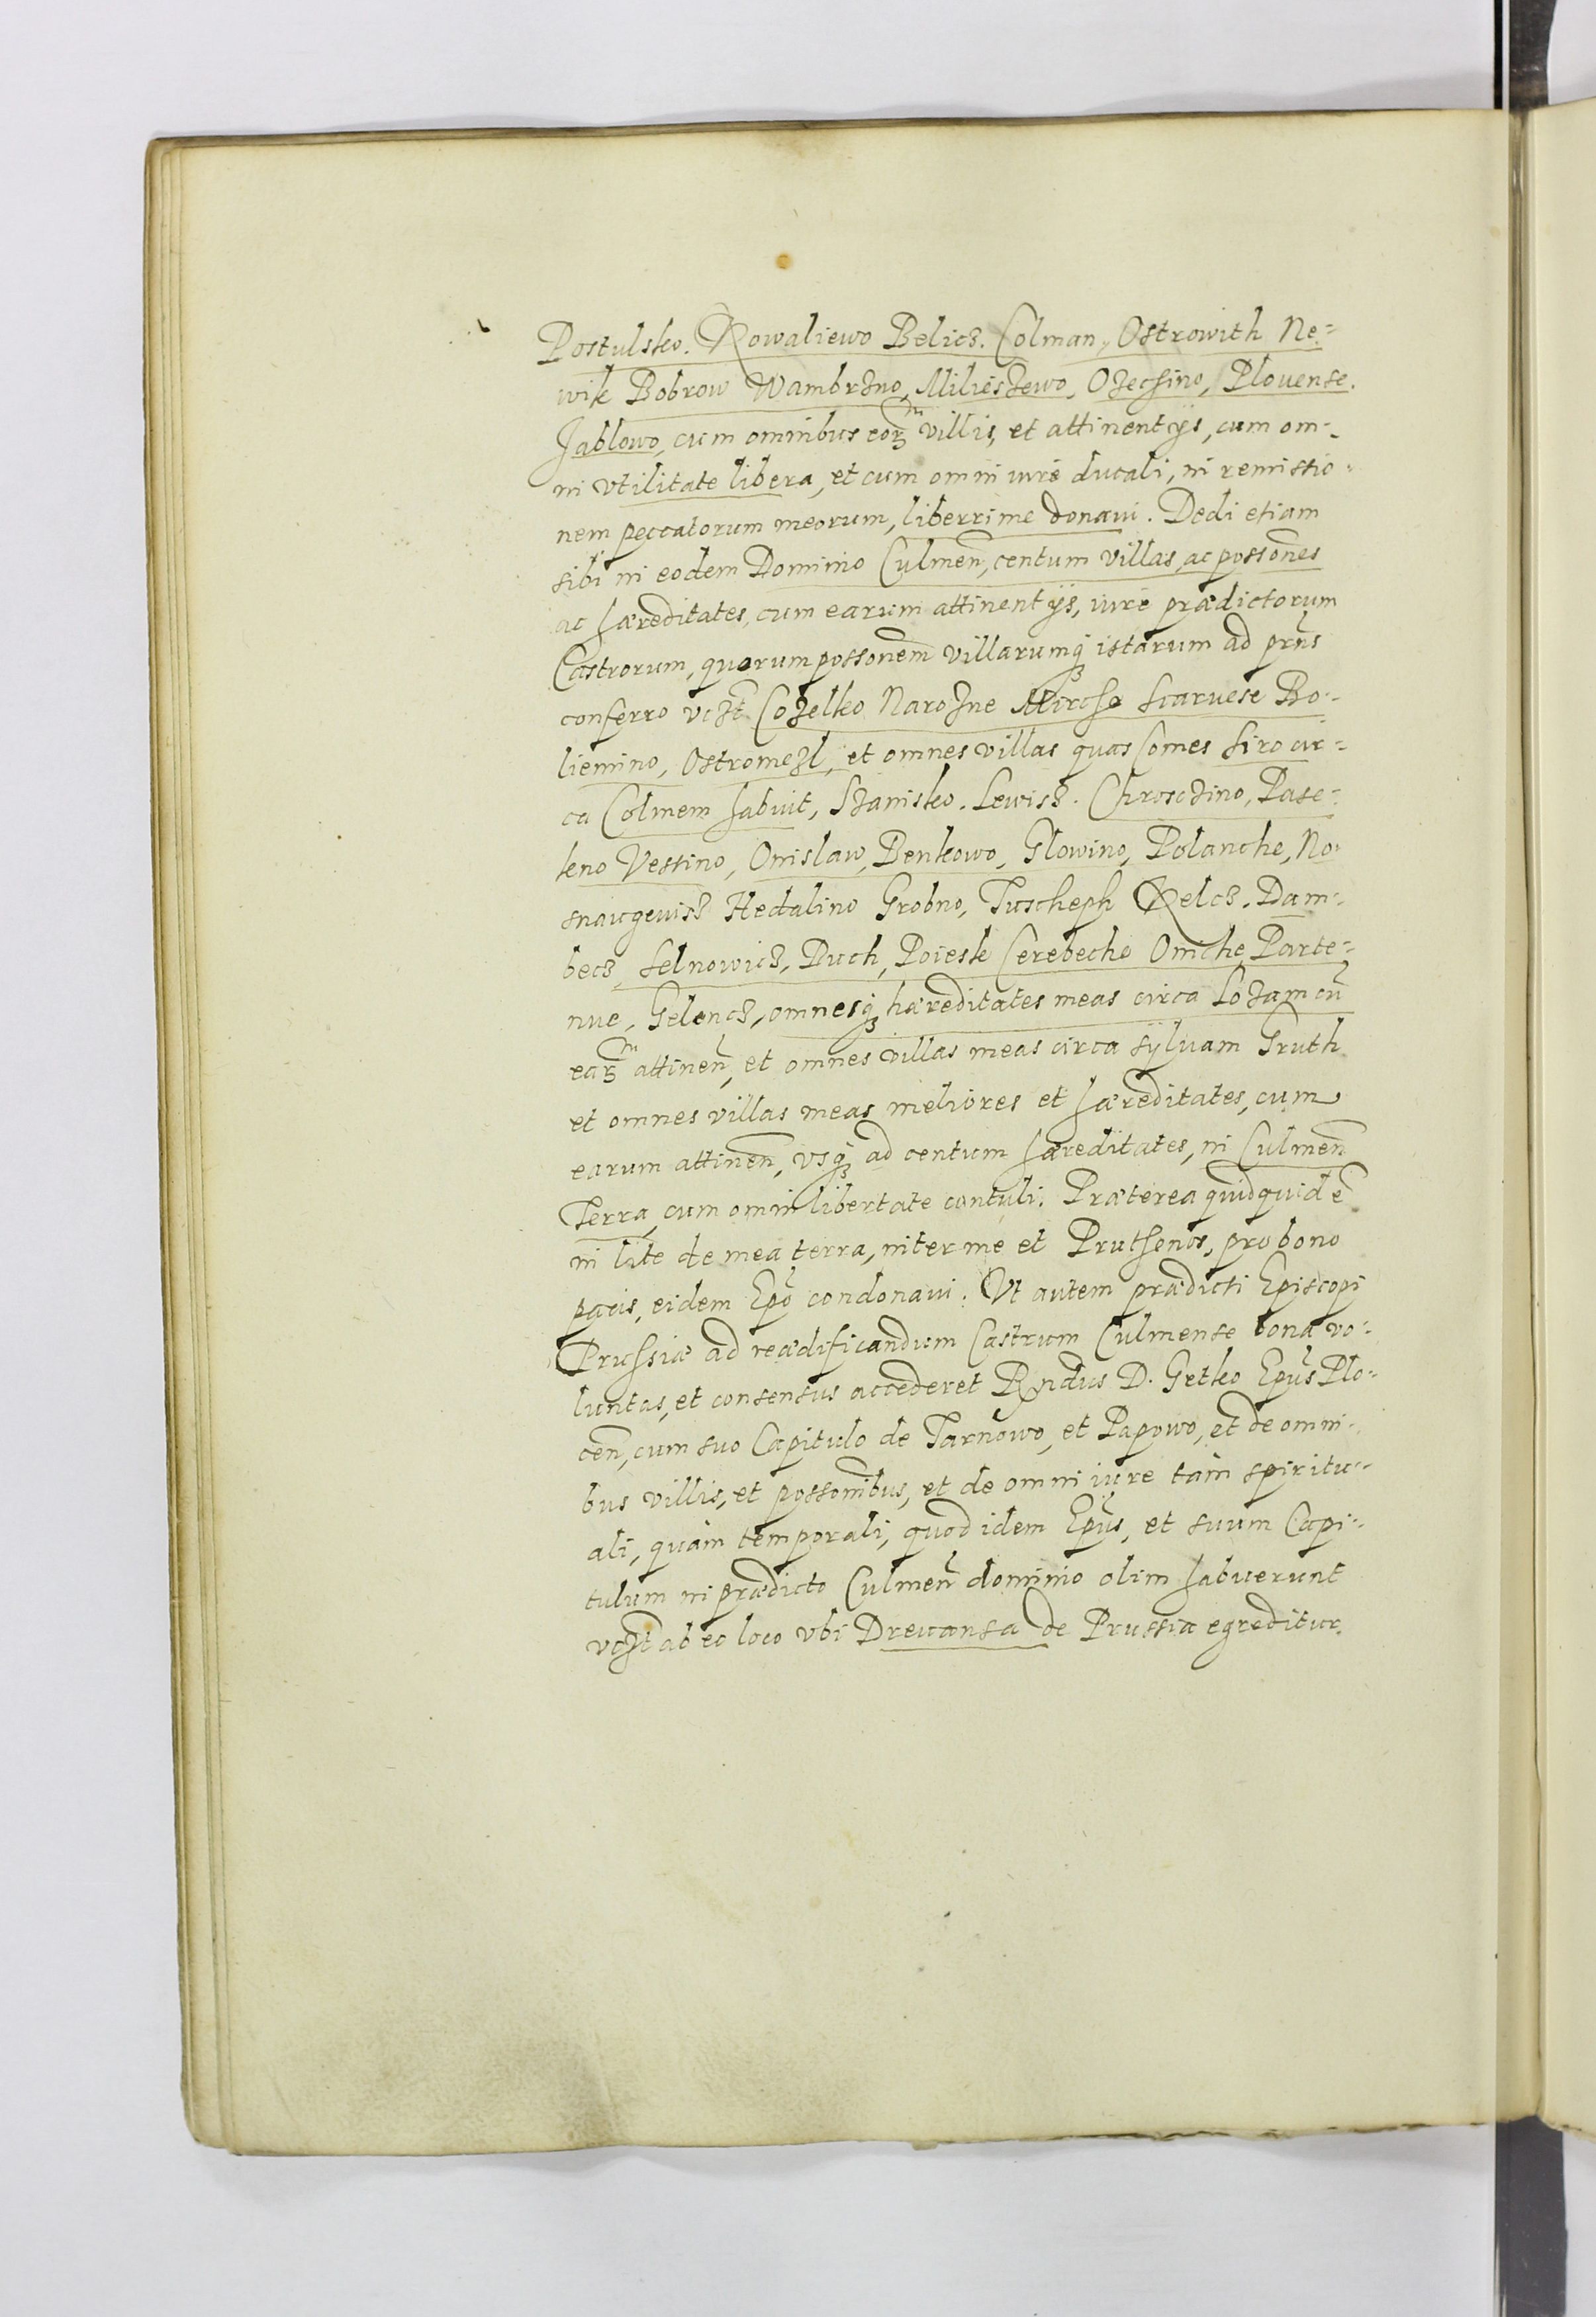 Postulsko. Kowaliewo Belicz. Colman, Ostrowith Ne=
wik Bobrow Wambrzno, Milieszewo, Ozechino, Plouense.
Jablowo, cum omnibus eorꝝ villis, et attinentijs, cum om=
ni vtilitate libera, et cum omni iure ducali, in remissio=
nem peccatorum meorum, liberrime donaui. Dedi etiam
sibi in eodem Dominio Culmeñ, centum villas, ac possoẽs
ac hæreditates, cum earum attinentijs, iure prædictorum
Castrorum, quorum possoñem villarumqꝫ istarum ad prñs
conferro vczt Cozelko Narozne Mircho Scaruese Bo=
liemino, Ostromezl, et omnes villas quas Comes Siro cir=
ca Colmem habuit, Stanisko. Lewisz. Chrosczino, Pase=
keno Vessino, Onislaw, Benkowo, Glowino, Polanche, No=
snaugeuisz Hedalino Grobno, Tuscheph Kelcz. Dam=
becz, Selnowicz, Duch, Poiesk Cerebecho Oniche, Parte=
nue, Gelencz, omnesqꝫ hæreditates meas circa Lozam cũ
earꝝ attineñ, et omnes villas meas circa syluam Gruth
et omnes villas meas meliores et hæreditates, cum
earum attineñ, vsqꝫ ad centum hæreditates, in Culmeñ
Terra, cum omni libertate contuli. Præterea quidquid ẽ
in lite de mea terra, inter me et Pruthenos, pro bono
pacis, eidem Epõ condonaui. Vt autem prædicti Episcopi
Prussiæ ad reædificandum Castrum Culmense bona vo=
luntas, et consensus accederet Rndus D. Getko Epũs Plo=
ceñ, cum suo Capitulo de Tarnowo, et Papowo, et de omni=
bus villis, et possonibus, et de omni iure tàm spiritu=
ali, quàm temporali, quod idem Epũs, et suum Capi=
tulum in prædicto Culmeñ dominio olim habuerunt
vczt ab eo loco vbi Dreuansa de Prussia egreditur